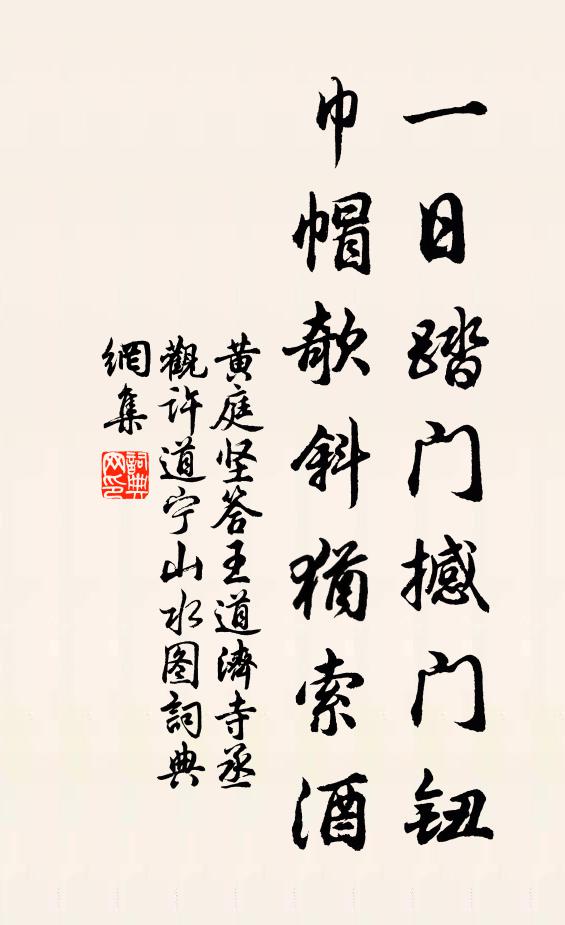 一日踏门撼门钮
巾帽欹斜犹索酒
黄庭坚答王道濟寺丞
觀许道宁山水图詞典
網集
詞典網印